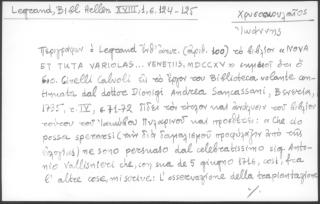 Legrand, Bibl. Hellén XVIII, 1, σ. 124-125
Χρυσοσκουλαῖος
Ἰωάννης
Περιγράφων ὁ Legrand (ἀριθ. 100) τὸ βιβλίον « NOVA
ET TUTA VARIOLAS... VENETIIS, MDCCXV » σημειοῖ ὅτι ὁ
Gio. Cinelli Calvoli εἰς τὸ ἔργον του Biblioteca volante con-
tinuata dal dottor Dionigi Andrea Sancassani, Venezia,
1735, τ. IV, σ. 71-72 τὸν τίτλον καὶ τοῦ βιβλίου
τούτου τοῦ Ἰακώβου Πυλαρινοῦ καὶ προσθέτει: « Che ciò
possa sperarsi ( ἀπὸ τῆς
) ne sono persuaso dal celebratissimo sig. Anto-
nio Vallisnieri che, con sua de 5 giugno 1716, così, fra
l' altre cose, mi scrive: L'osservazione della trapiantazione
·/.